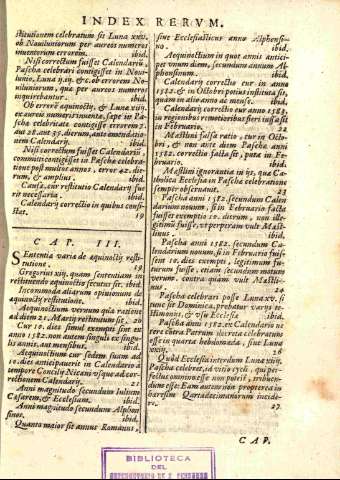 INDEX RERVM.
stitutionem celebratum sit Luna xxiv.
ob Nouiluniorum per aureos numeros
inuentorum errorem. ibid.
Nisi correctum fuisset Calendariũ,
Pascha celebrari contigisset in Noui-
lunio, in Luna ij. iij. &c. ob errorem No-
uiluniorum, qua per aureos numeros
inquirebantur. ibid.
Ob errorē aequinoctij, & Lunae xiiij.
ex aureis numeris inuentae, saepe in Pas-
chae celebritate contigisse errorem 7.
aut 28. aut 35. dierum, ante emendatio-
nem Calendarij. ibid.
Nisi correctum fuisset Calendariũ,
committi contigisset in Paschae celebra-
tione post multos annos, error 42. die-
rum, & amplius. ibid.
Causae, cur restitutio Calendarij fue
rit necessaria. ibid.
Calendarij correctio in quibus consi-
stat. 19
CAP. III.
SEntentia varia de aequinoctij resti-
tutione. 19
Gregorius xiij. quam sententiam in
restituendo aequinoctio secutus sit. ibid.
Incommoda aliarum opinionum de
aequinoctij restitutione. ibid.
Aequinoctium verum qua ratione
ad diem 21. Martij restitutum sit. 20
Cur 10. dies simul exempti sint ex
anno 1582. non autem singuli ex singu-
lis annis, aut mensibus. ibid.
Aequinoctium cur sedem suam ad
10. dies anticipauerit in Calendario à
tempore Concilij Nicaeni vsque ad cor-
rectionem Calendarij. 21
Anni magnitudo secundum Iulium
Caesarem, & Ecclesiam. ibid.
Anni magnitudo secundum Alphon
sinos. ibid.
Quanto maior sit annus Romanus,
siue Ecclesiasticus anno Alphonsi-
no. ibid.
Aequinoctium in quot annis antici-
pet vnum diem, secundum annum Al-
phonsinum. ibid.
Calendarij correctio cur in anno
1582. & in Octobri potius instituta sit,
quam in alio anno ac mense. ibid.
Calendarij correctio cur anno 1583.
in regionibus remotioribus fieri iussa sit
in Februario. ibid.
Maestlini falsa ratio, cur in Octo-
bri, & non ante diem Paschae anni
1582. correctio facta sit, puta in Fe-
bruario. ibid.
Maestlini ignorantia in ijs, quae Ca-
tholica Ecclesia in Paschae celebratione
semper obseruauit. 23
Paschae anni 1582. secundum Calen
darium nouum, si in Februario facta
fuisset exemptio 10. dierum, non ille-
gitimum fuisse, vt perperam vult Maest-
linus. ibid.
Pascha anni 1582. secundum Ca-
lendarium nouum, si in Februario fuis-
sent 10. dies exempti, legitimum fu-
turum fuisse, etiam secundum motum
verum, contra quam vult Maesti-
nus. 24
Pascha celebrari posse Luna xv. si
tunc sit Dominica, probatur varijs te-
stimonijs, & vsu Ecclesiae. ibid.
Pascha anni 1582. ex Calendario ve
tere contra Patrum decreta celebratum
esse in quarta hebdomada, siue Luna
xxiij. 26
Quòd Ecclesia interdum Luna xxiij.
Pascha celebret, id vitio cycli, qui per-
fectus omnino esse non potest, tribuen-
dum esse: Eam autem non propterea in
haeresim Quartadecimanorum incide-
re. 27
CAP.
BIBLIOTECA
DEL